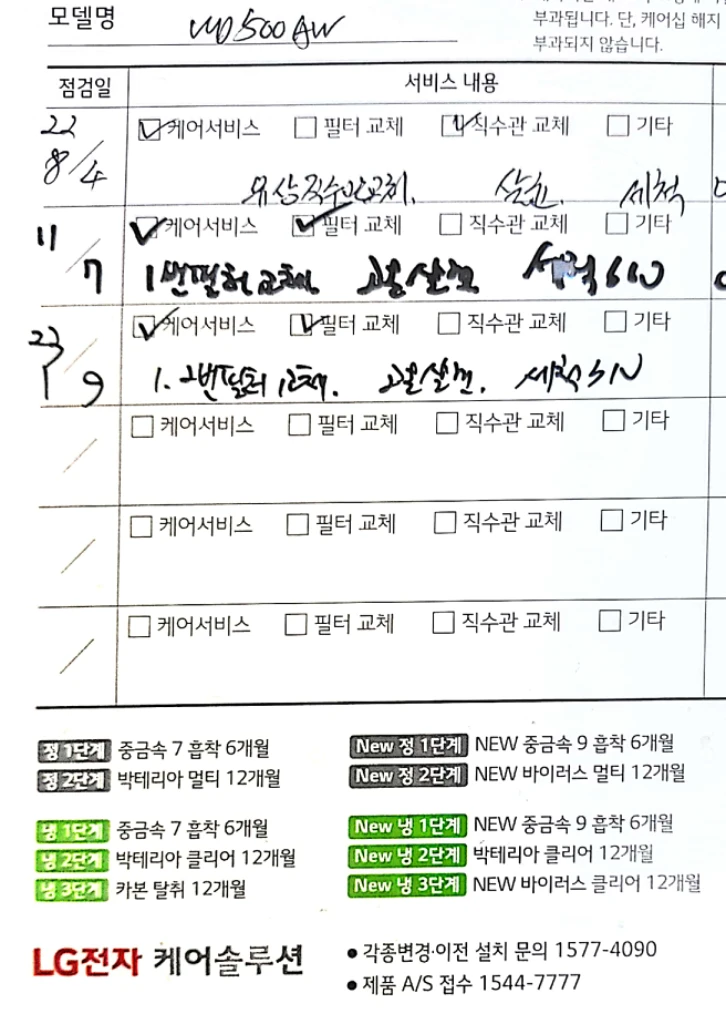 부과됩니다. 단, 케어십 해지
모델명 WD500AW
부과되지 않습니다.
점검일 서비스 내용
22 8/4 케어서비스 필터 교체 직수관 교체 기타
유상직수관교체. 살균. 세척
11/7 케어서비스 필터 교체 직수관 교체 기타
1번필터교체. 고온살균
23 1/9 케어서비스 필터 교체 직수관 교체 기타
1. 2번필터 교체. 고온살균. 세척
케어서비스 필터 교체 직수관 교체 기타
/
케어서비스 필터 교체 직수관 교체 기타
/
케어서비스 필터 교체 직수관 교체 기타
/
정 1단계 중금속 7 흡착 6개월 New 정 1단계 NEW 중금속 9 흡착 6개월
정 2단계 박테리아 멀티 12개월 New 정 2단계 NEW 바이러스 멀티 12개월
냉 1단계 중금속 7 흡착 6개월 New 냉 1단계 NEW 중금속 9 흡착 6개월
냉 2단계 박테리아 클리어 12개월 New 냉 2단계 박테리아 클리어 12개월
냉 3단계 카본 탈취 12개월 New 냉 3단계 NEW 바이러스 클리어 12개월
LG전자 케어솔루션 • 각종변경·이전 설치 문의 1577-4090
• 제품 A/S 접수 1544-7777